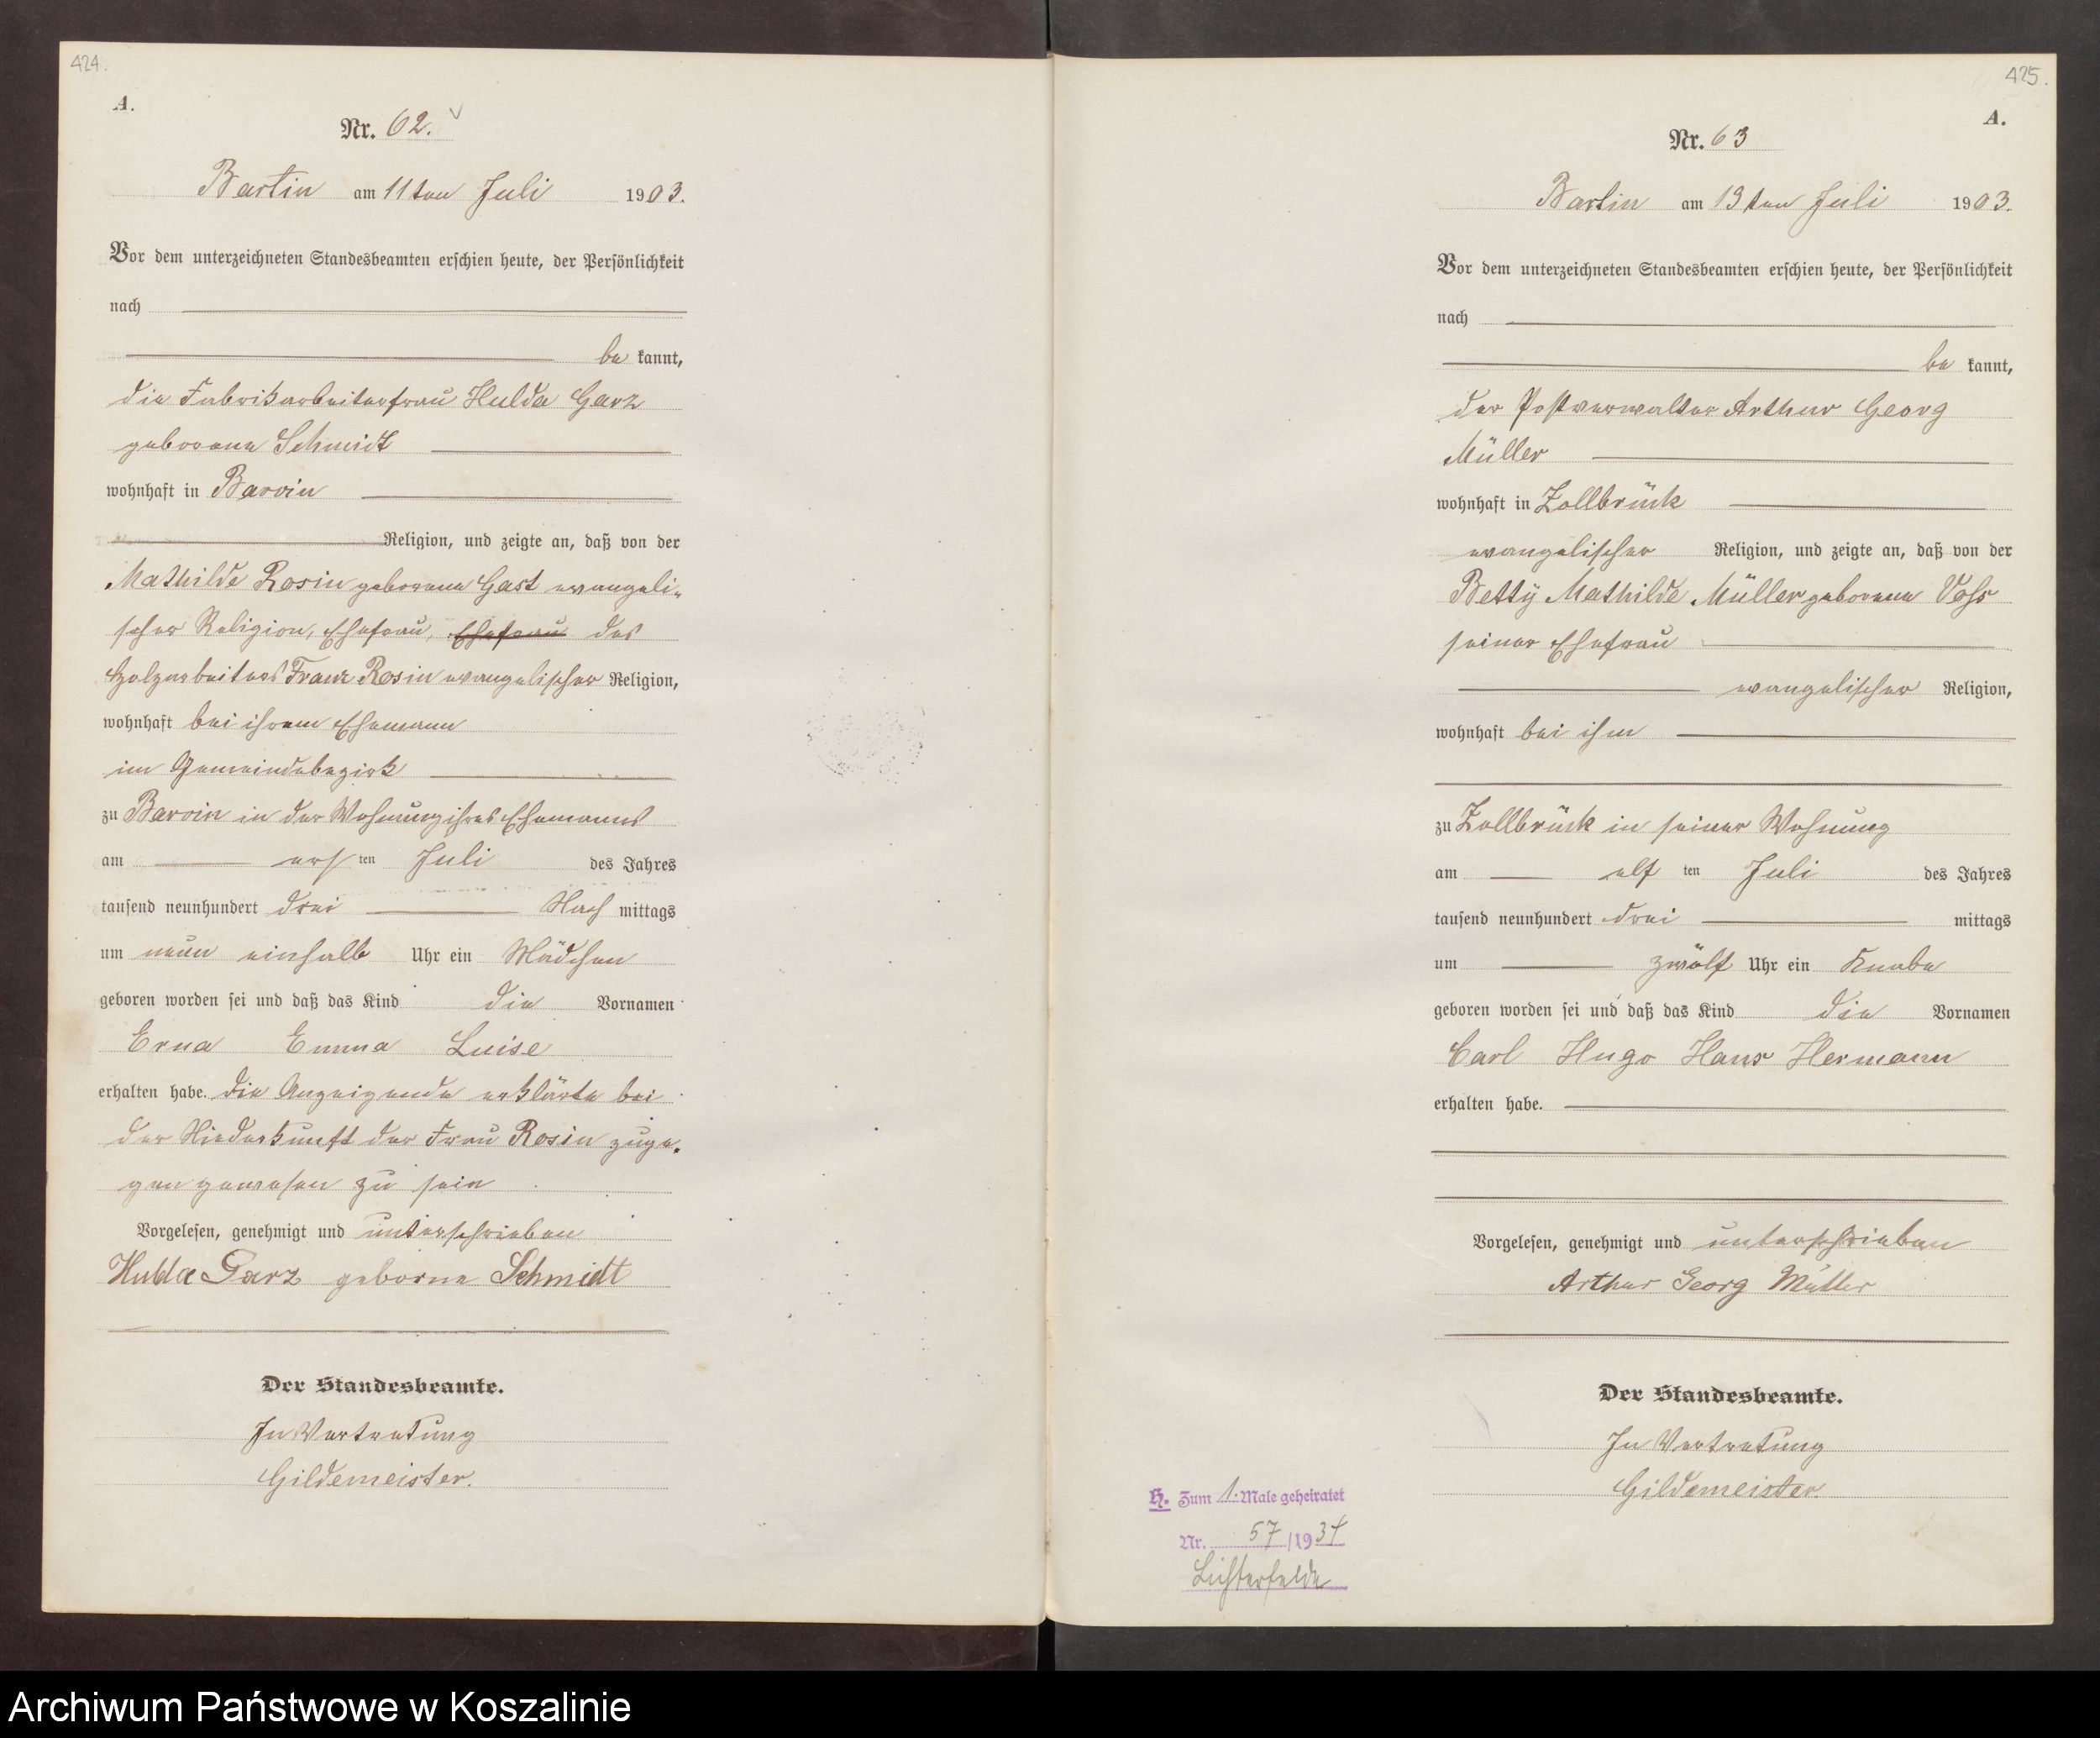 424.
A.
Nr. 62.
Bartin am 11ten Juli 1903.
Vor dem unterzeichneten Standesbeamten erschien heute, der Persönlichkeit
nach
be kannt,
die Fabrikarbeiterfrau Hulda Garz
geborene Schmidt
wohnhaft in Barvin
Religion, und zeigte an, daß von der
Mathilde Rosin geborene Gast evangeli-
scher Religion, Ehefrau, Ehefrau des
Holzarbeiters Franz Rosin evangelischer Religion,
wohnhaft bei ihrem Ehemann
im Gemeindebezirk
zu Barvin in der Wohnung ihres Ehemanns
am ersten Juli des Jahres
tausend neunhundert drei Nach mittags
um neun einhalb Uhr ein Mädchen
geboren worden sei und daß das Kind die Vornamen
Erna Emma Luise
erhalten habe. Die Anzeigende erklärte bei
der Niederkunft der Frau Rosin zuge-
gen gewesen zu sein
Vorgelesen, genehmigt und unterschrieben
Hulda Garz geborne Schmidt
Der Standesbeamte.
In Vertretung
Gildemeister.
425.
A.
Nr. 63
Bartin am 13ten Juli 1903.
Vor dem unterzeichneten Standesbeamten erschien heute, der Persönlichkeit
nach
be kannt,
der Postverwalter Arthur Georg
Müller
wohnhaft in Zollbrück
evangelischer Religion, und zeigte an, daß von der
Betty Mathilde Müller geborene Voss
seiner Ehefrau
evangelischer Religion,
wohnhaft bei ihm
zu Zollbrück in seiner Wohnung
am elf ten Juli des Jahres
tausend neunhundert drei mittags
um zwölf Uhr ein Knabe
geboren worden sei und daß das Kind die Vornamen
Carl Hugo Hans Hermann
erhalten habe.
Vorgelesen, genehmigt und unterschrieben
Arthur Georg Müller
Der Standesbeamte.
In Vertretung
Gildemeister.
H. Zum 1. Male geheiratet
Nr. 57/1934
Lichterfelde
Archiwum Państwowe w Koszalinie